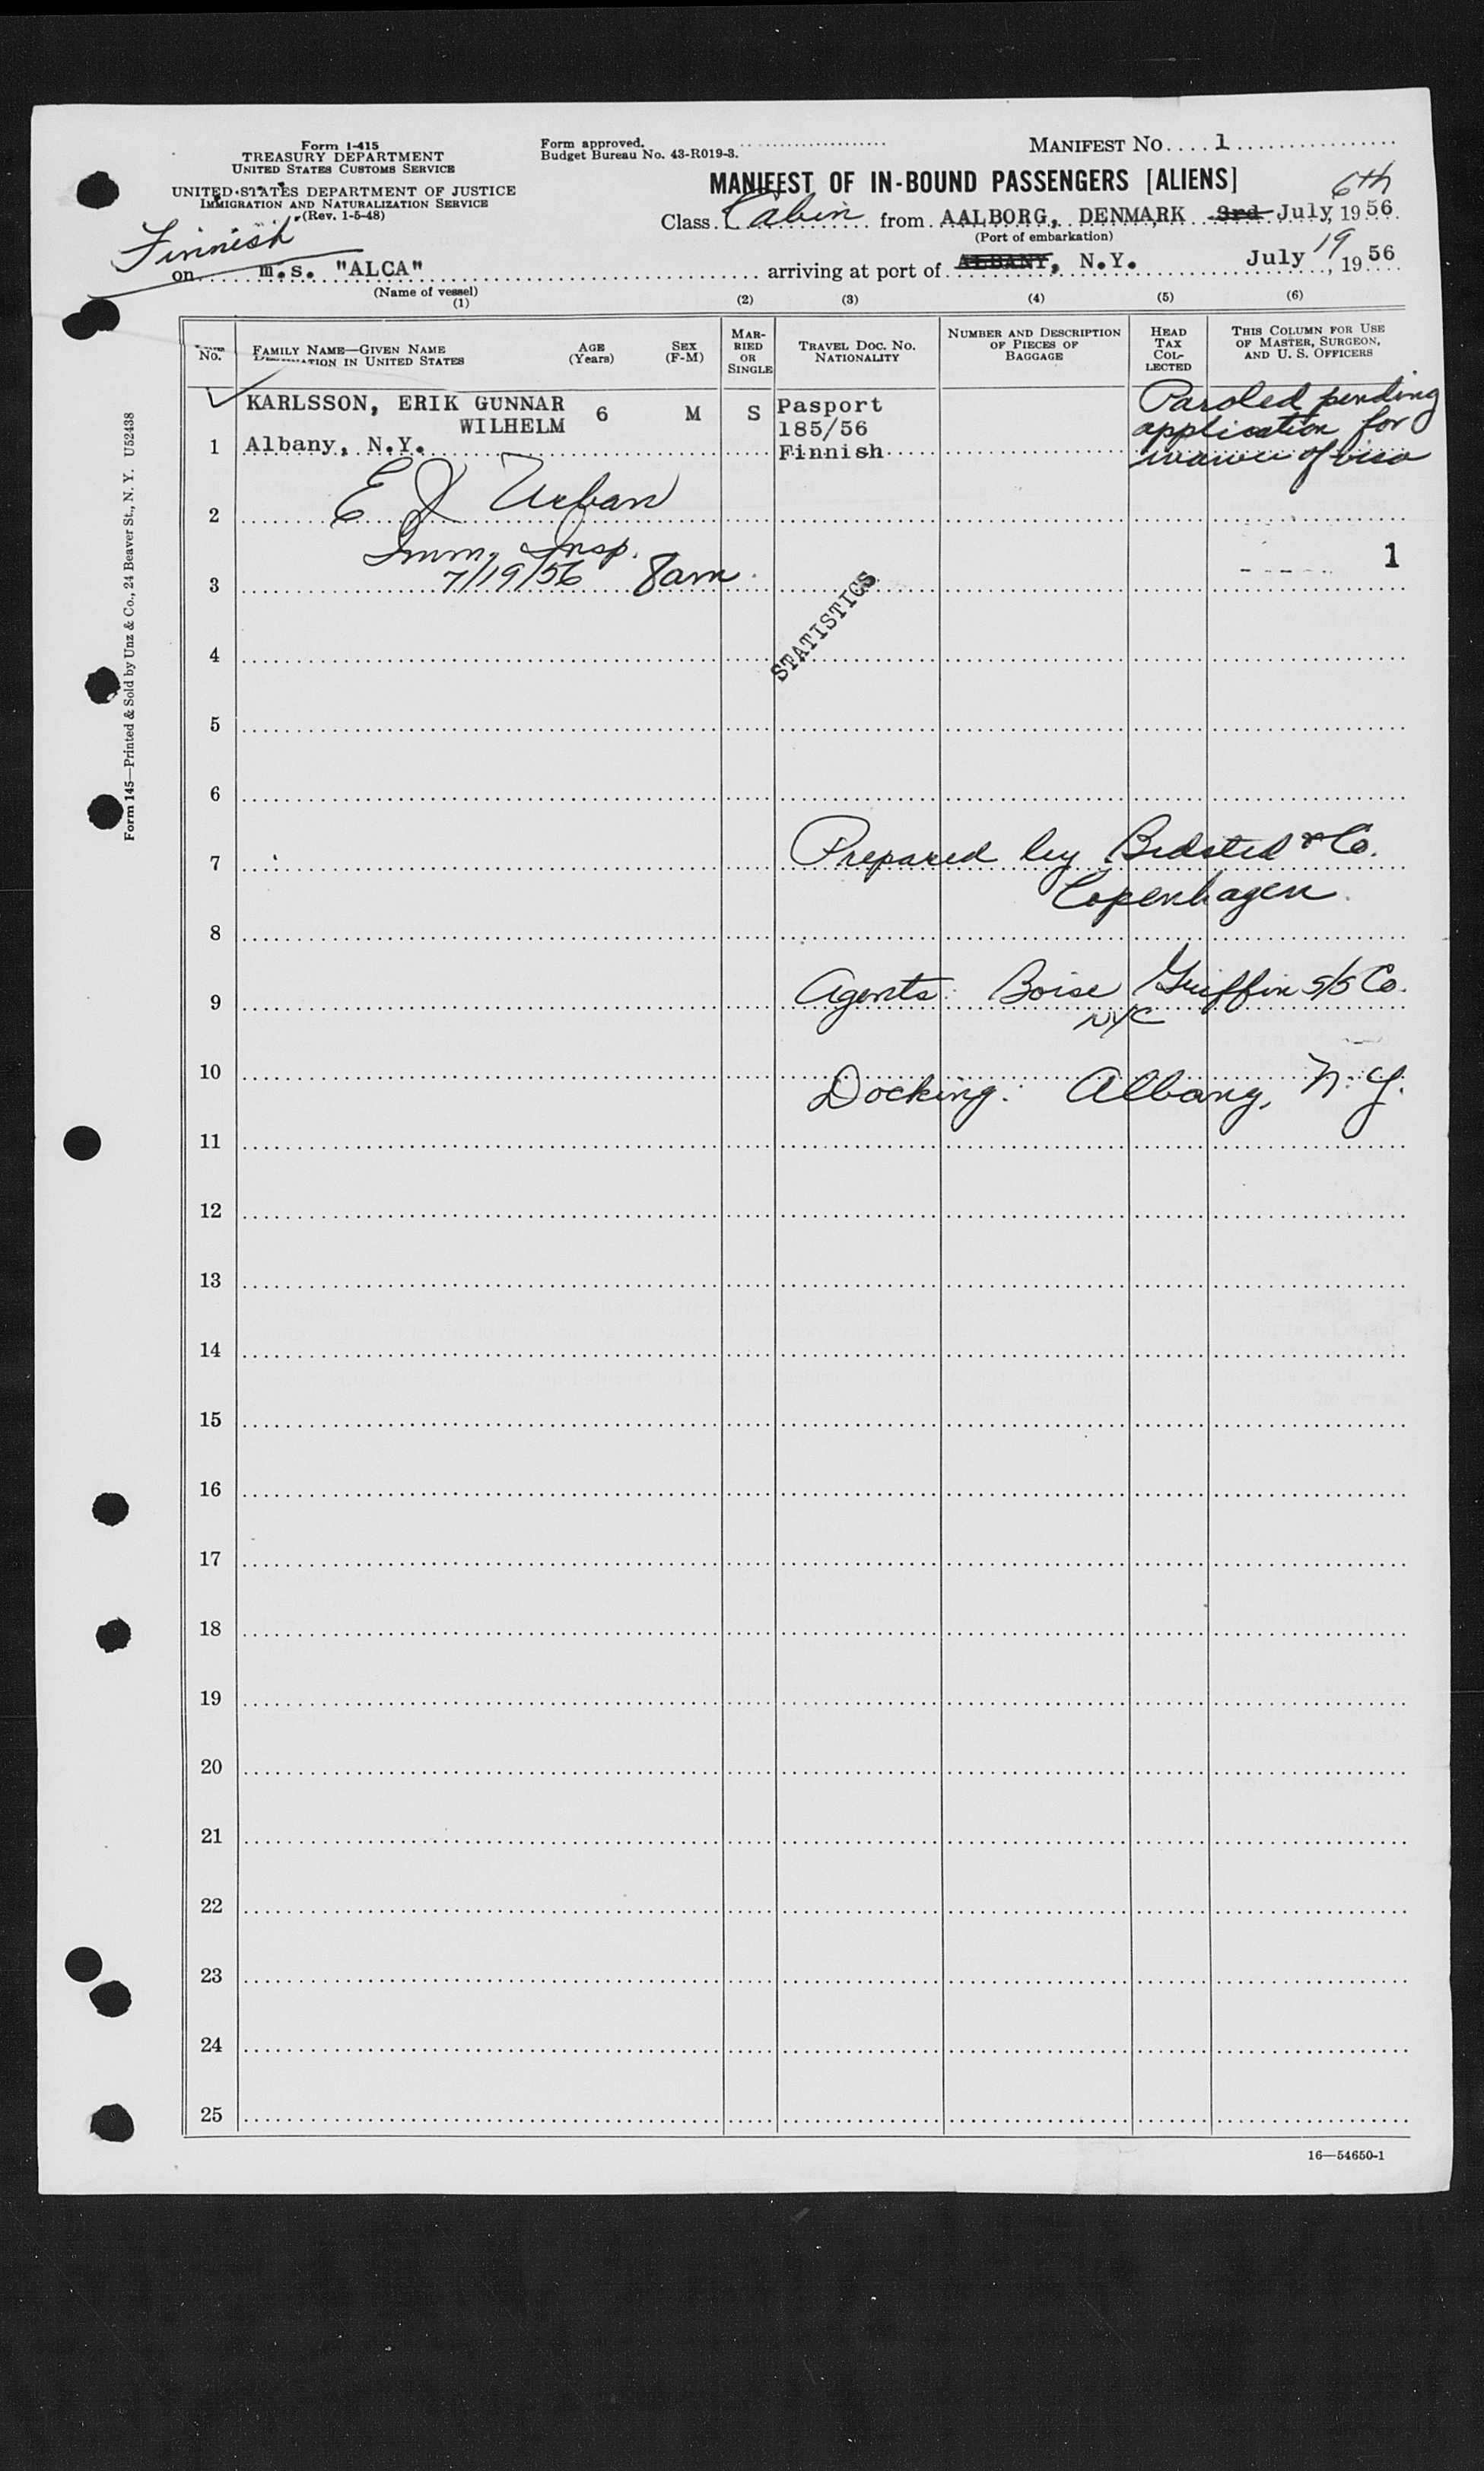 Form I-415
TREASURY DEPARTMENT
UNITED STATES CUSTOMS SERVICE
UNITED STATES DEPARTMENT OF JUSTICE
IMMIGRATION AND NATURALIZATION SERVICE
(Rev. 1-5-48)
Form approved.
Budget Bureau No. 43-R019-3.
MANIFEST NO. 1
MANIFEST OF IN-BOUND PASSENGERS [ALIENS]
Class Cabin from AALBORG, DENMARK 3rd 6th July, 1956
(Port of embarkation)
Finnish
on m.s. "ALCA" arriving at port of ALBANY, N.Y. July 19, 1956
(Name of vessel)
(1) (2) (3) (4) (5) (6)
No. FAMILY NAME—GIVEN NAME AGE (Years) SEX (F-M) MARRIED OR SINGLE TRAVEL DOC. NO. NATIONALITY NUMBER AND DESCRIPTION OF PIECES OF BAGGAGE HEAD TAX COLLECTED THIS COLUMN FOR USE OF MASTER, SURGEON, AND U. S. OFFICERS
DESTINATION IN UNITED STATES
KARLSSON, ERIK GUNNAR 6 M S Pasport Paroled pending
WILHELM 185/56 application for
1 Albany, N.Y. Finnish waiver of visa
2 E J Urban
Imm. Insp. 1
3 7/19/56 8am
STATISTICS
4
5
6
7 Prepared by Bedsted & Co.
Copenhagen.
8
9 Agents: Boise Griffin S/S Co.
NYC
10
Docking: Albany, N.Y.
11
12
13
14
15
16
17
18
19
20
21
22
23
24
25
16—54650-1
Form 145—Printed & Sold by Unz & Co., 24 Beaver St., N. Y. U52438